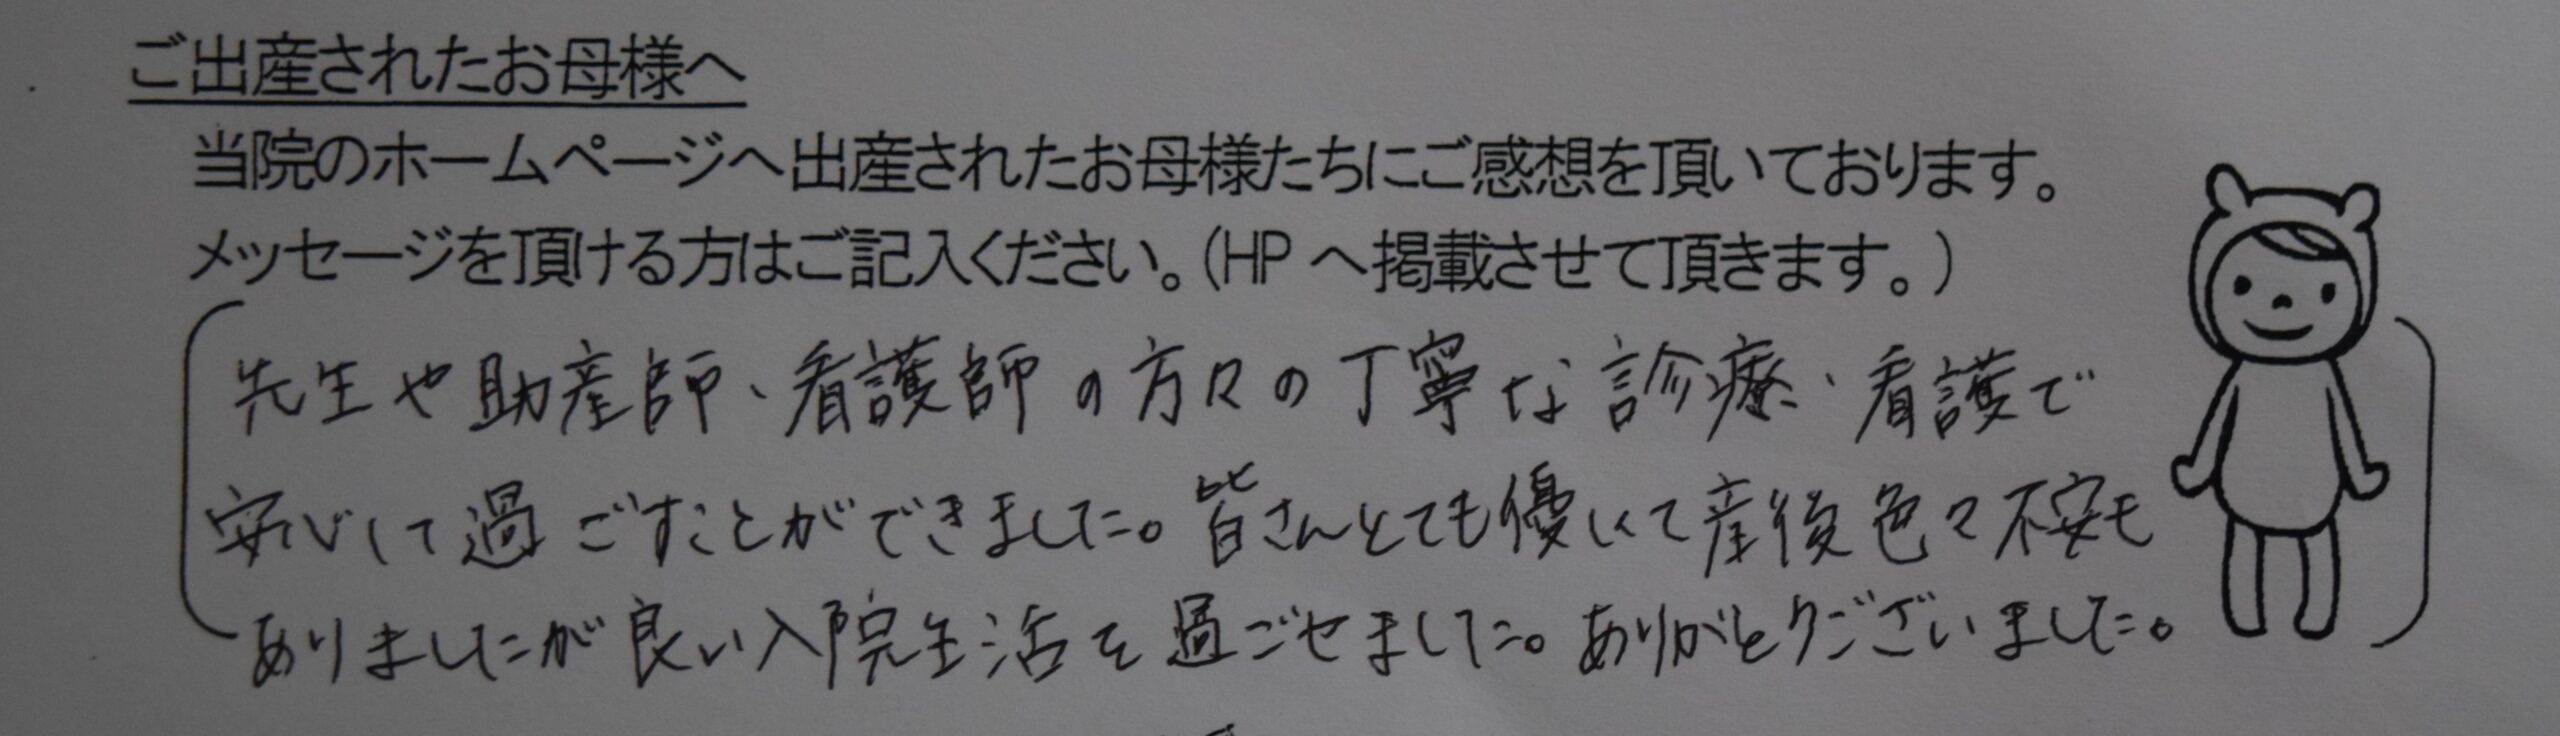 ご出産されたお母様へ
当院のホームページへ出産されたお母様たちにご感想を頂いております。
メッセージを頂ける方はご記入ください。(HP へ掲載させて頂きます。)
先生や助産師、看護師の方々の丁寧な診療、看護で
安心して過ごすことができました。皆さんとても優しくて産後色々不安も
ありましたが良い入院生活を過ごせました。ありがとうございました。